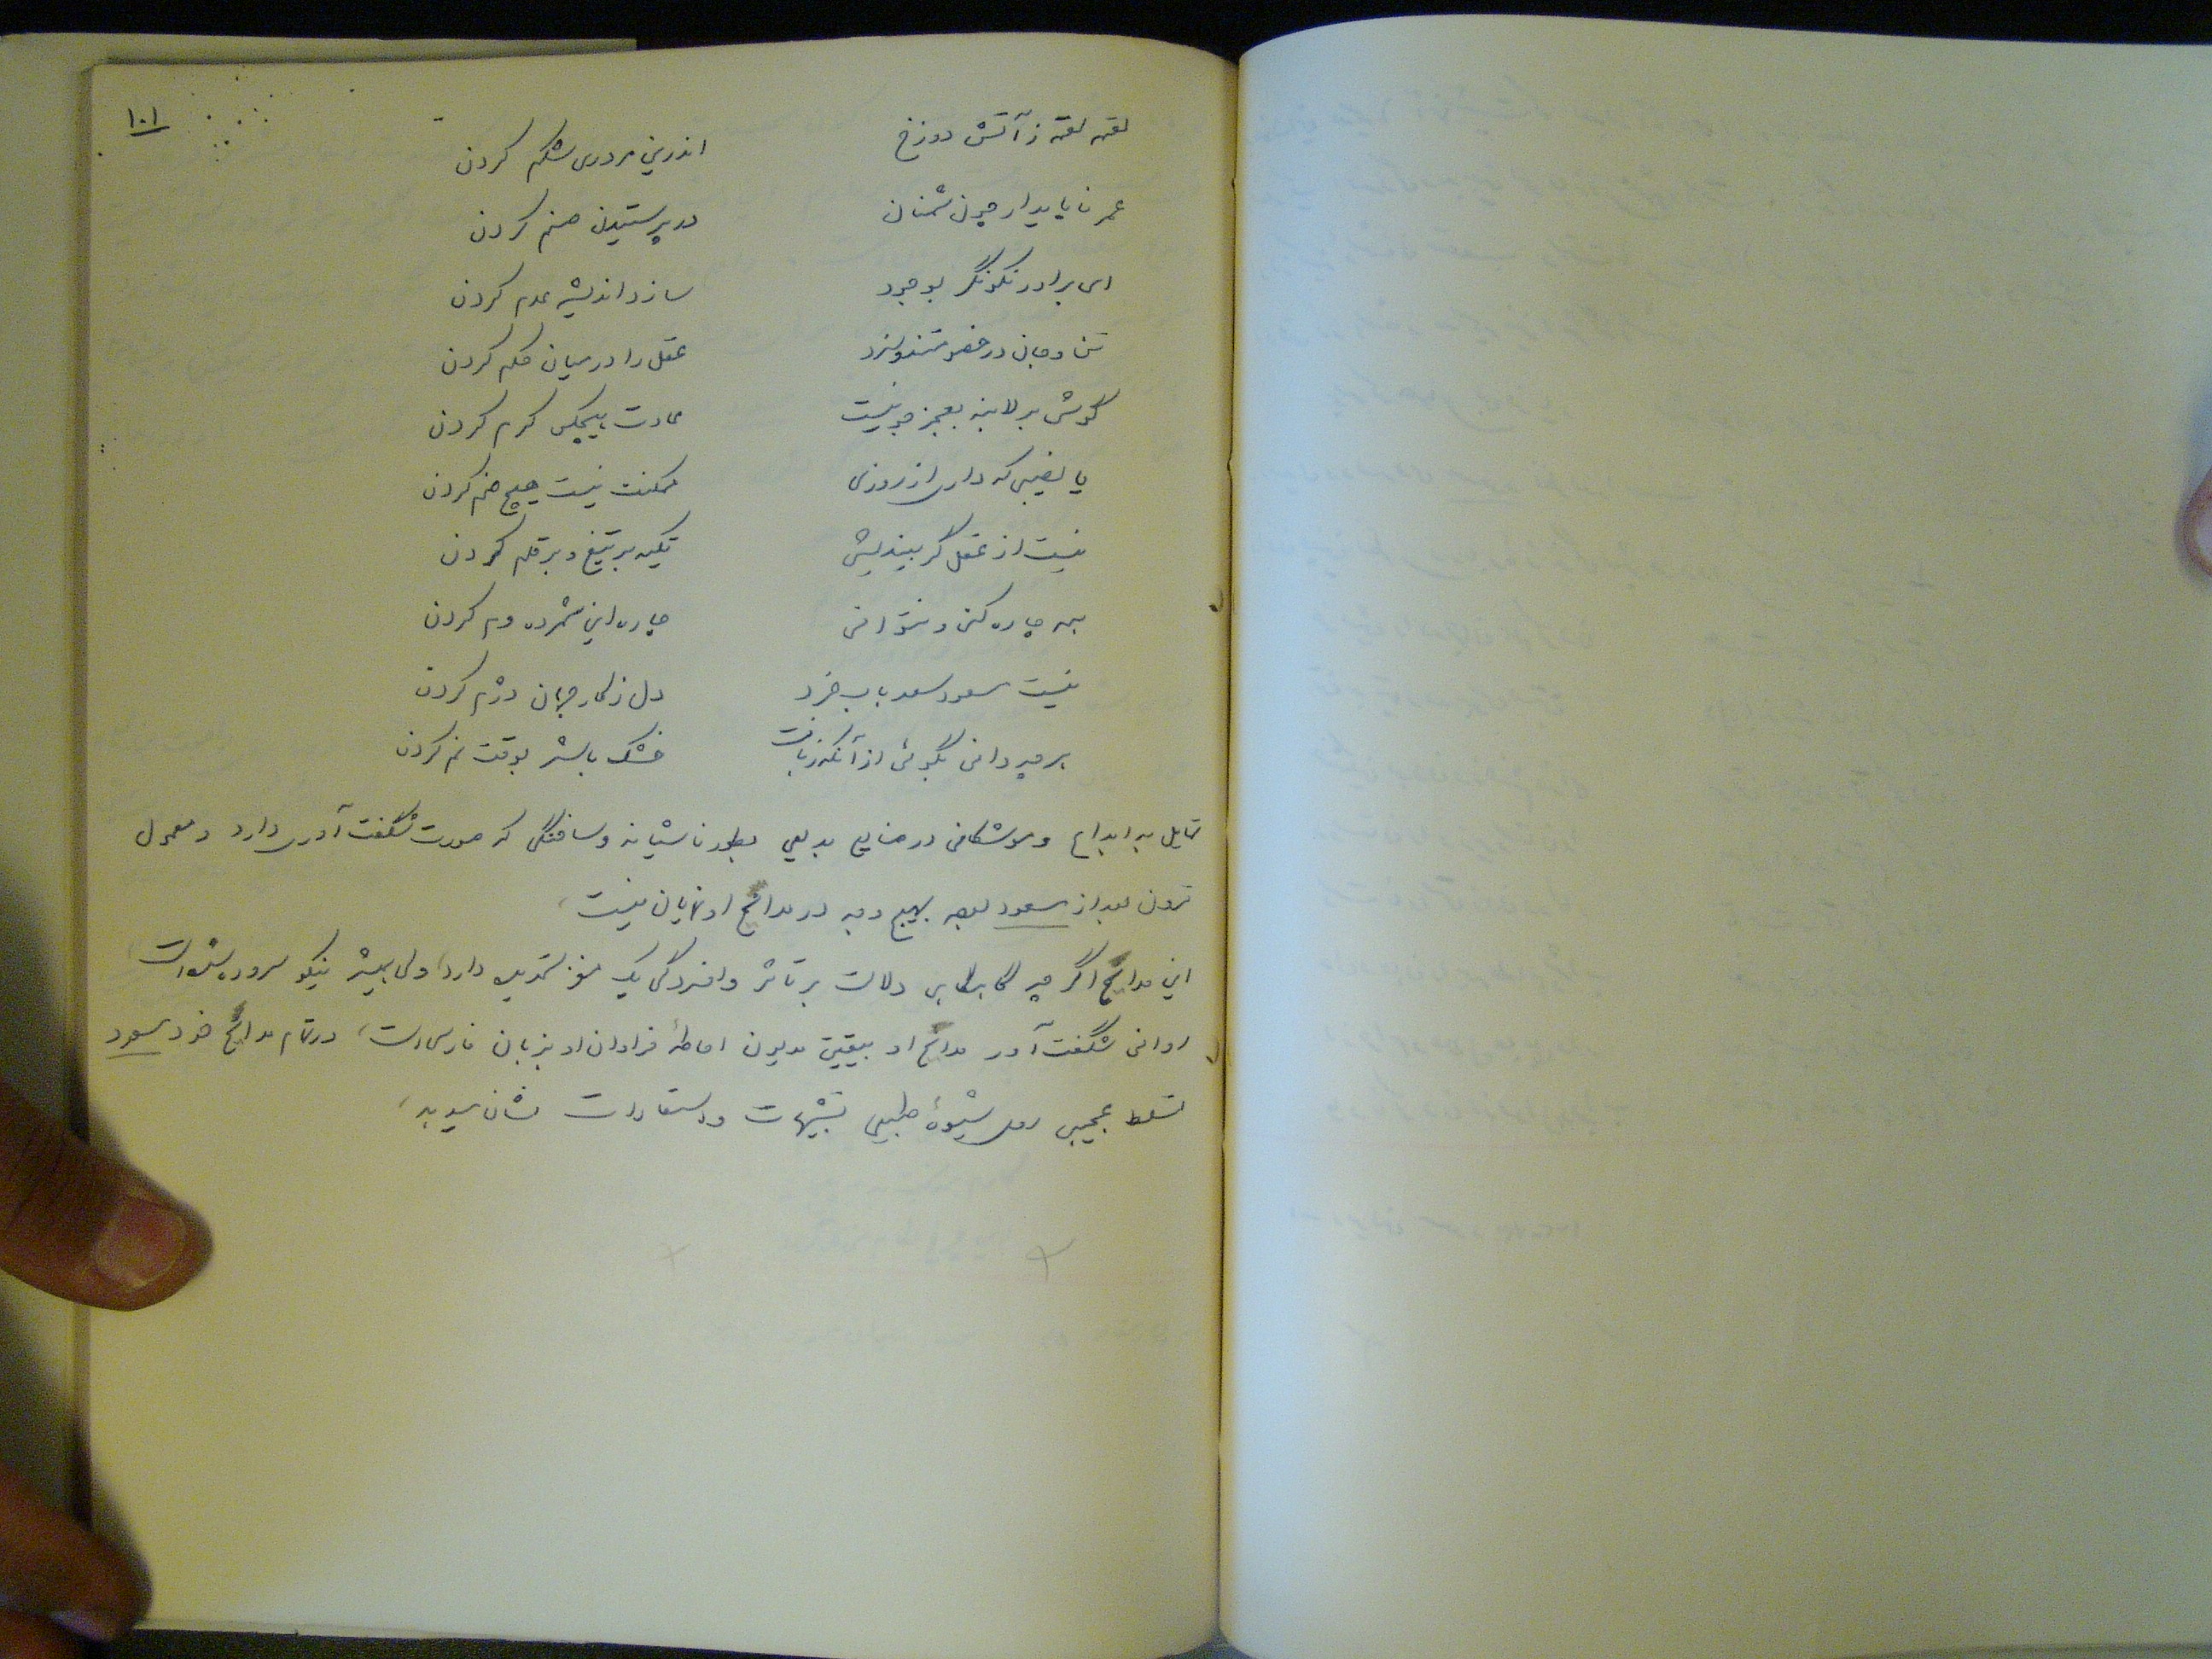 ۱۰۱
لقمه لقمه ز آتش دوزخ اندرین مردری شکم کردن
عمر ناپایدار چون شمنان در پرستیدن صنم کردن
ای برادر نکو نگر بوجود سازد اندیشه عدم کردن
تن و جان در خصومتند و سزد عقل را در میان حکم کردن
گوش بر لابه بعجز چو نیست عادت هیچکس کرم کردن
با نصیبی که داری از روزی ممکنت نیست هیچ ضم کردن
نیست از عقل گر بیندیشی تکیه بر تیغ و بر قلم کردن
همه چاره کنی و نتوانی چاره این شمرده دم کردن
نیست مسعود سعد باب خرد دل ز کار جهان دژم کردن
هر چه دانی بگوئی از آنکه زبانت خشک باشد بوقت نم کردن
تمایل به ابداع و موشکافی در صنایع بدیعی بطور ناشیانه و ساختگی که صورت شگفت آوری دارد و معمول
قرون بعد از مسعود بوده بهیچ وجه در مدائح او نمایان نیست،
این مدایح اگر چه گاه گاهی دلالت بر تأثر و افسردگی یک مغز دارد، ولی همیشه نیکو سروده شده است
روانی شگفت آور مدائح او بیقین مدیون احاطهٔ فراوان او بزبان فارسی است، در تمام مدائح خود مسعود
تسلط عجیبی روی شیوهٔ طبیعی تشبیهات و استعارات نشان میدهد،